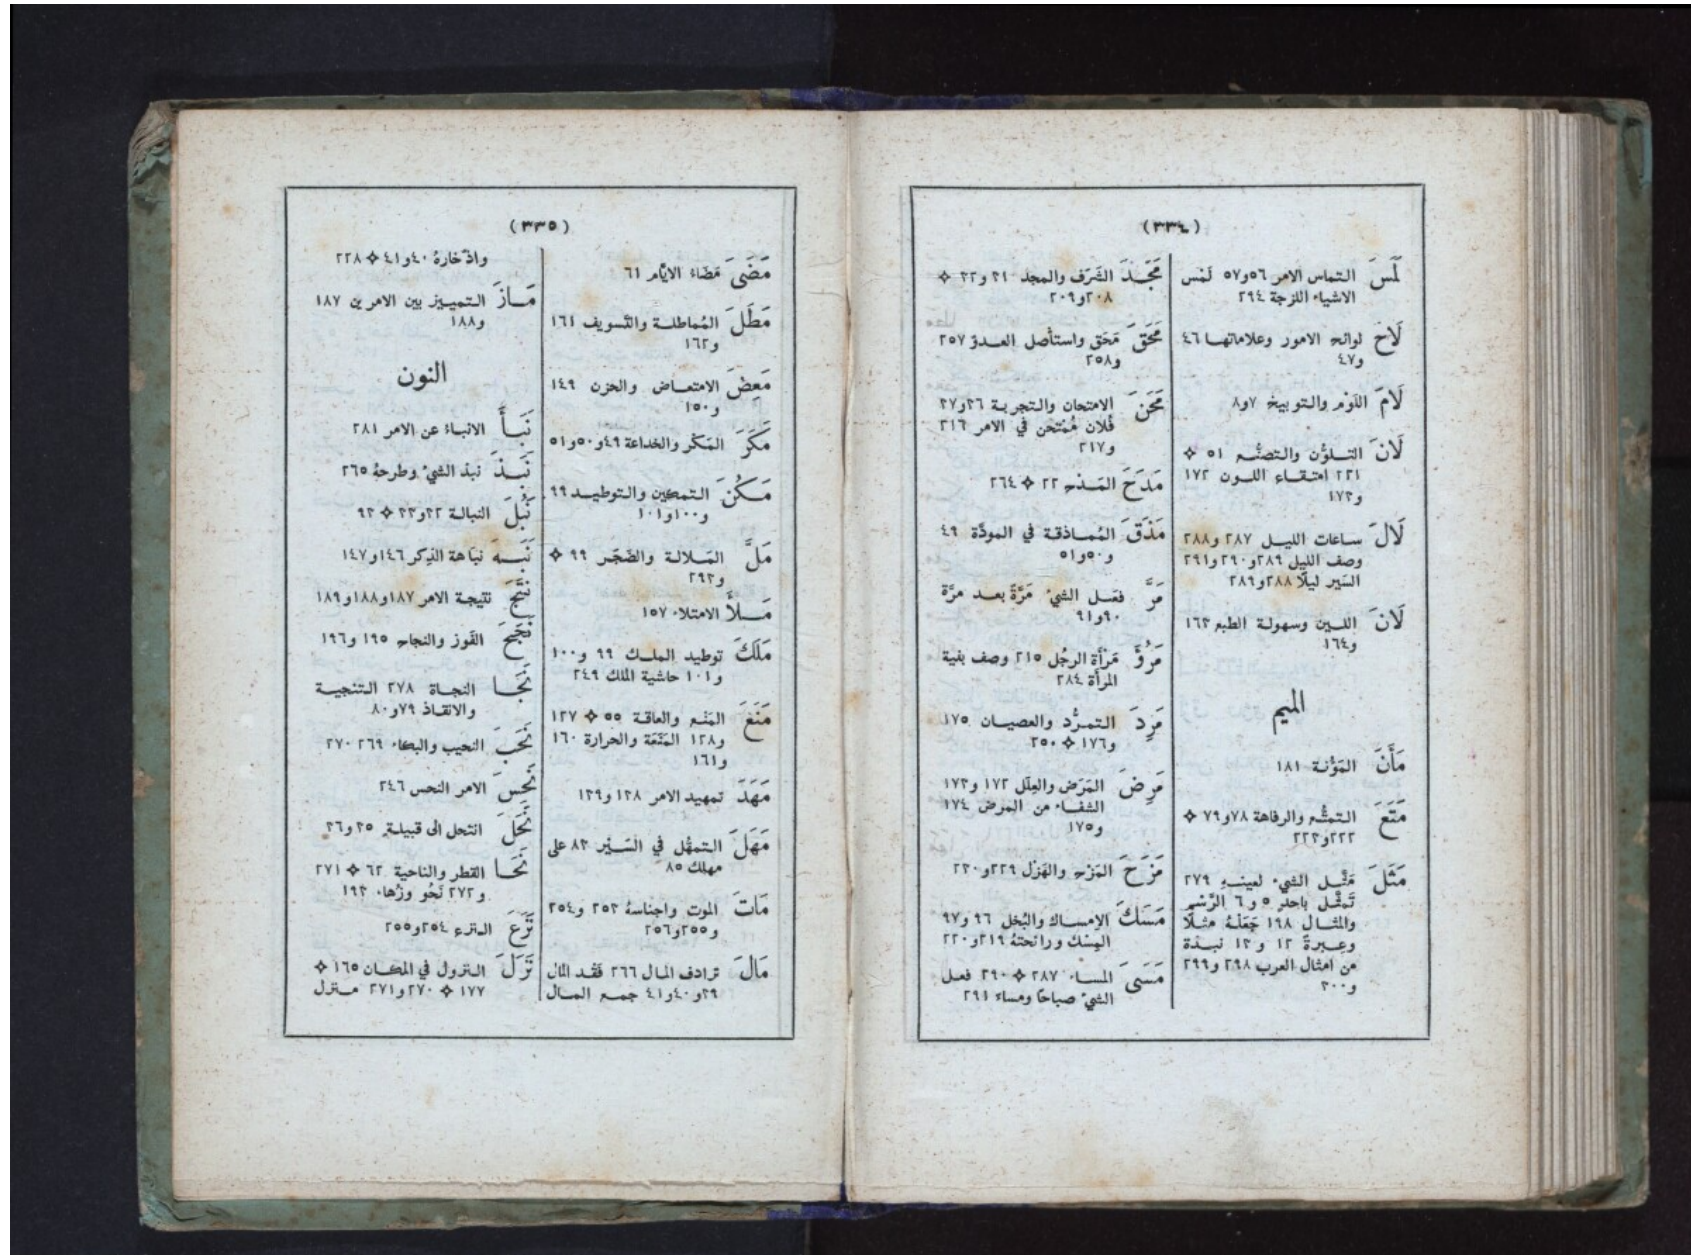 (٣٣٤)
لَمَسَ التماس الامر ٥٦ و٥٧ لَمْس
الاشياء اللزجة ٢٩٤
لَاحَ لوائح الامور وعلاماتها ٤٦
و٤٧
لَامَ اللَوْم والتوبيخ ٧و٨
لَانَ التلوُّن والتصنُّع ٥١ ✧
٢٢١ امتقاء اللون ١٧٢
و١٧٣
لَالَ ساعات الليل ٢٨٧ و٢٨٨
وصف الليل ٢٨٩و٢٩٠و٢٩١
السَير ليلًا ٢٨٨و٢٨٩
لَانَ اللين وسهولة الطبع ١٦٣
و١٦٤
الميم
مَأَنَ المَوُّنة ١٨١
مَتَعَ التمتُّع والرفاهة ٧٨و٧٩ ✧
٢٢٢و٢٢٣
مَثَلَ مَثْل الشيء لعينهِ ٢٧٩
تَمثَّل باحدٍ ٥ و٦ الرَّسْم
والمثال ١٩٨ جَعَلهُ مثلًا
وعِبرةً ١٢ و١٣ نبذة
من امثال العرب ٢٩٨ و٢٩٩
و٣٠٠
مَجُدَ الشَرَف والمجد ٢١ و٢٢ ✧
٢٠٨و٢٠٩
مَحَقَ مَحَق واستأصل العدوّ ٢٥٧
و٢٥٨
مَحَنَ الامتحان والتجربة ٢٦و٢٧
فُلان مُمْتَحن في الامر ٢١٦
و٢١٧
مَدَحَ المَدْح ٢٢ ✧ ٢٦٤
مَذَقَ المُماذقة في المودَّة ٤٩
و٥٠و٥١
مَرَّ فعَل الشيءَ مَرَّةً بعد مرَّة
٩٠و٩١
مَرُؤَ مَرْأَة الرجُل ٢١٥ وصف بنية
المرأَة ٢٨٤
مَرِدَ التمرُّد والعصيان ١٧٥
و١٧٦ ✧ ٢٥٠
مَرِضَ المَرَض والعِلَل ١٧٢ و١٧٣
الشفاء من المرض ١٧٤
و١٧٥
مَزَحَ المَزْح والهَزْل ٢٢٩و٢٣٠
مَسَكَ الإمساك والبُخل ٩٦ و٩٧
المِسْك ورائحتهُ ٢١٩و٢٢٠
مَسَى المساء ٢٨٧ ✧ ٢٩٠ فعل
الشيءَ صباحًا ومساءً ٢٩١
(٣٣٥)
مَضَى مَضَاءُ الايَّام ٦١
مَطَلَ المُماطلة والتَّسويف ١٦١
و١٦٢
مَعِضَ الامتعاض والحزن ١٤٩
و١٥٠
مَكَرَ المَكْر والخداعة ٤٩و٥٠و٥١
مَكُنَ التمكين والتوطيد ٩٩
و١٠٠و١٠١
مَلَّ المَلالة والضَجَر ٩٩ ✧
و٢٩٢
مَلَأَ الامتلاء ١٥٧
مَلَكَ توطيد الملك ٩٩ و١٠٠
و١٠١ حاشية الملك ٢٤٩
مَنَعَ المَنْع والعاقة ٥٥ ✧ ١٢٧
و١٢٨ المَنَعَة والحرارة ١٦٠
و١٦١
مَهَدَ تمهيد الامر ١٢٨ و١٢٩
مَهَلَ التمهُّل في السَيْر ٨٣ على
مهلك ٨٥
مَاتَ الموت واجناسهُ ٢٥٣ و٢٥٤
و٢٥٥و٢٥٦
مَالَ ترادف المال ٢٦٦ فَقْد المال
٣٩و٤٠و٤١ جمع المال
واذّخارهُ ٤٠و٤١ ✧ ٢٢٨
مَازَ التمييز بين الامرين ١٨٧
و١٨٨
النون
نَبَأَ الانباءُ عن الامر ٢٨١
نَبَذَ نبذ الشيءَ وطرحهُ ٢٦٥
نَبُلَ النبالة ٢٢و٢٣ ✧ ٩٣
نَبَهَ نباهة الذِكر ١٤٦و١٤٧
نَتَجَ نتيجة الامر ١٨٧و١٨٨و١٨٩
نَجَحَ الفَوز والنجاح ١٩٥ و١٩٦
نَجَا النجاة ٢٧٨ التنجية
والانقاذ ٧٩و٨٠
نَحَبَ النحيب والبكاء ٢٦٩ ٢٧٠
نَحِسَ الامر النحس ٢٤٦
نَحَلَ انتحل الى قبيلةٍ ٢٥ و٢٦
نَحَا القطر والناحية ٦٢ ✧ ٢٧١
و٢٧٢ نَحْو وزُهاء ١٩٣
نَزَعَ النزع ٢٥٤و٢٥٥
نَزَلَ النزول في المكان ١٦٥ ✧
١٧٧ ✧ ٢٧٠و٢٧١ منزل